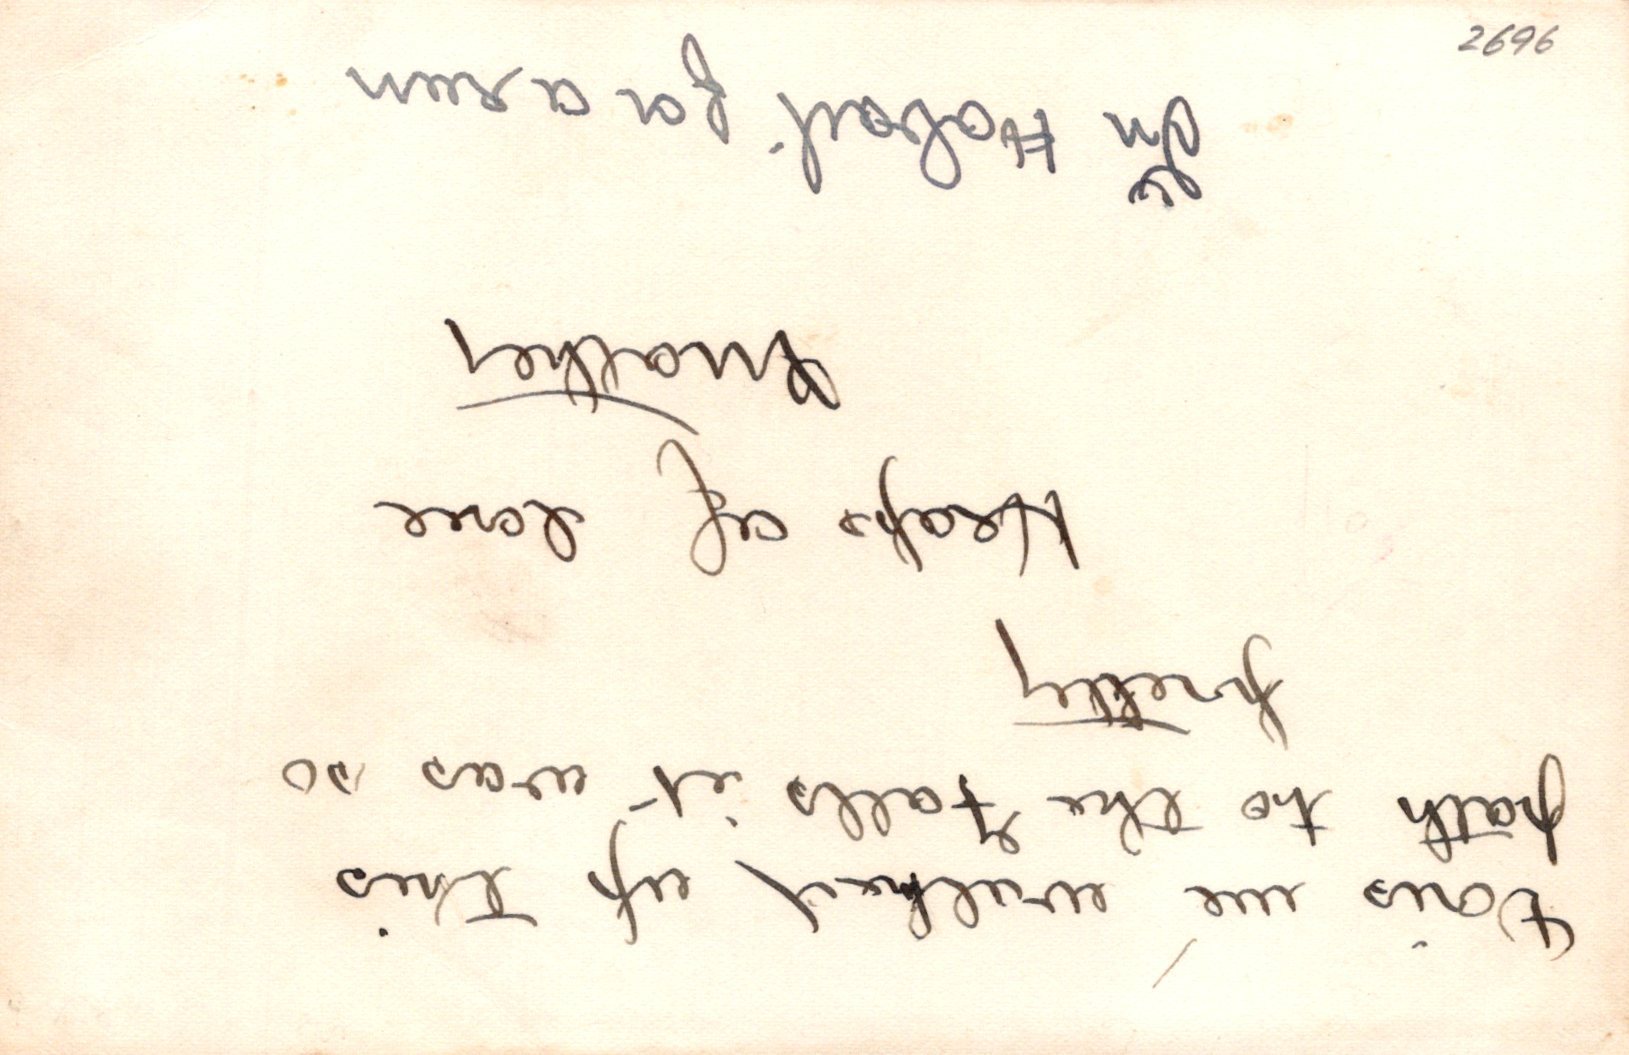 Dais we walked up this
path to the Falls it was so
pretty
Heaps of love
Mother
In Hobart for a run
2696